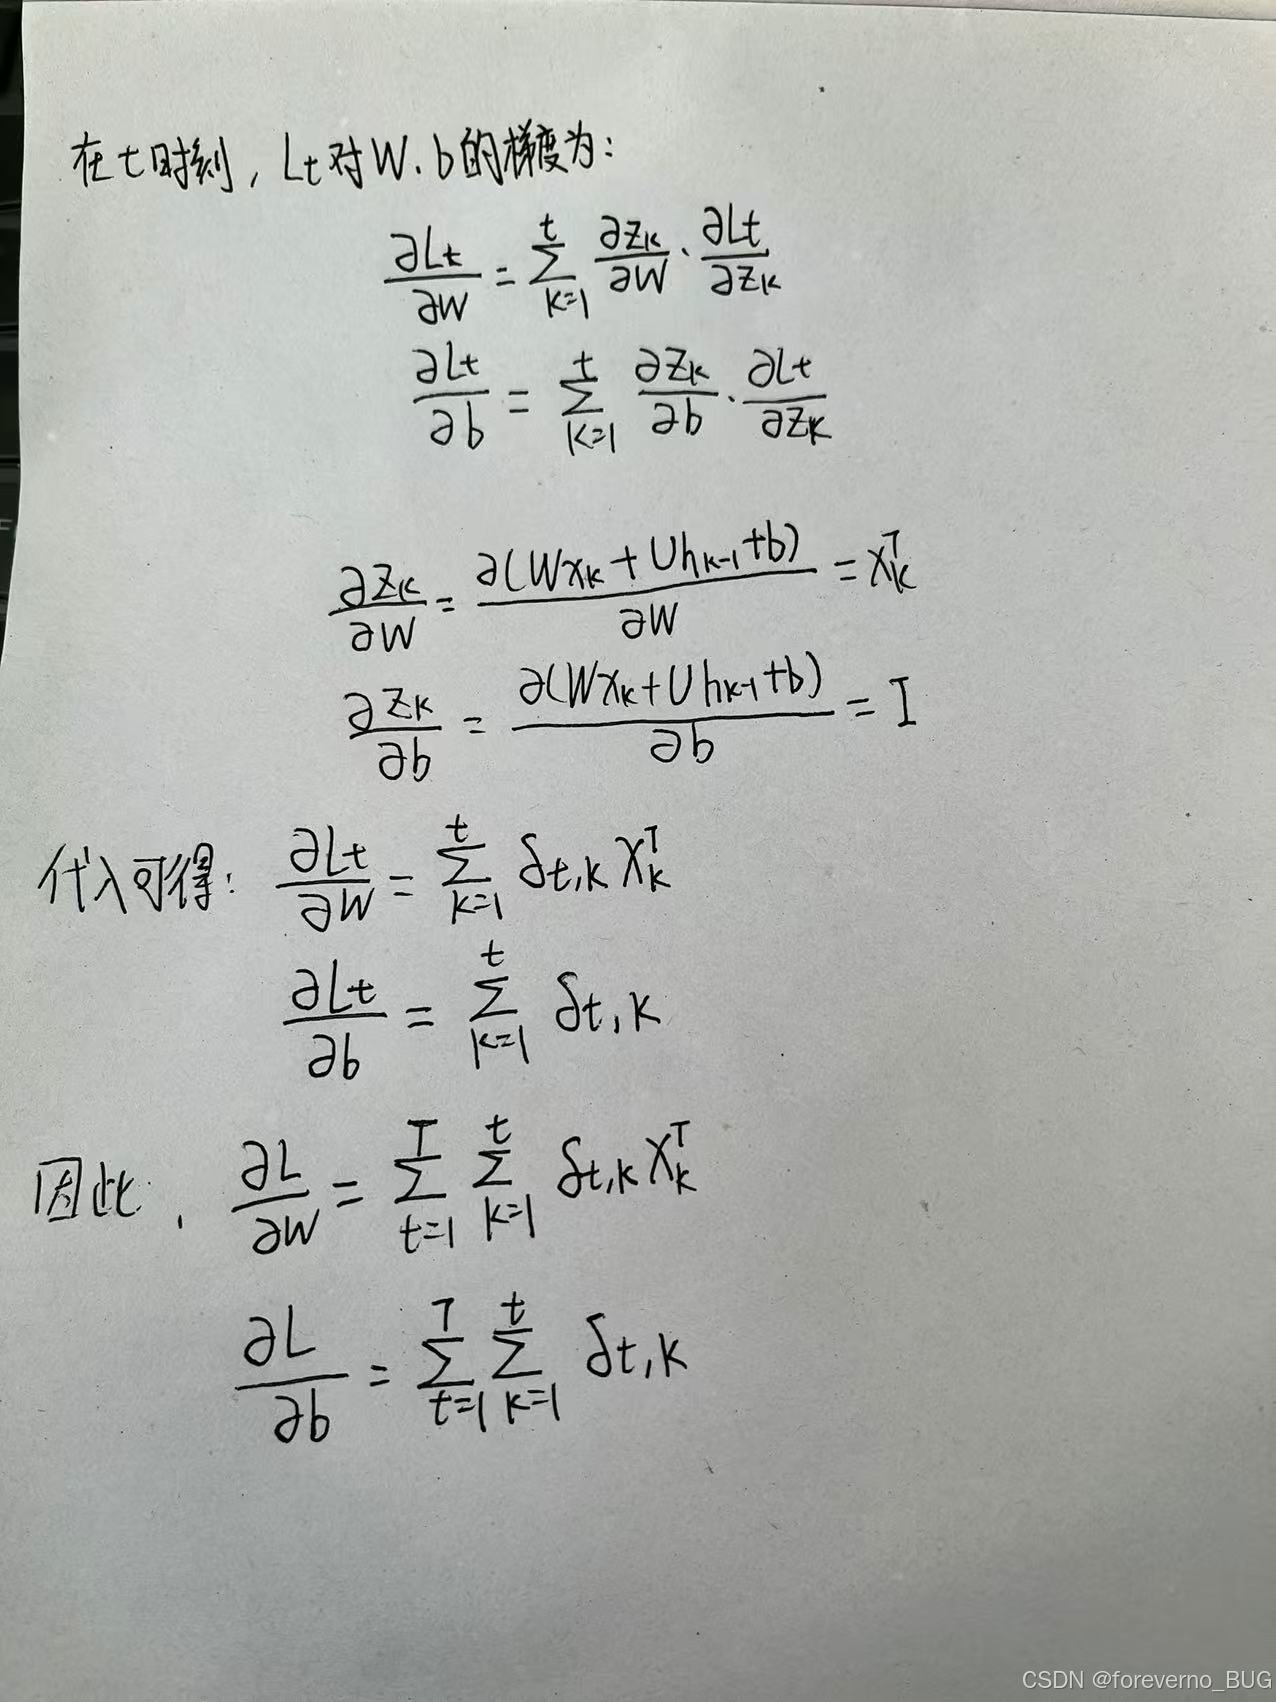 在t时刻，Lt对W、b的梯度为：
∂Lt/∂W = ∑_{k=1}^{t} ∂Zk/∂W · ∂Lt/∂Zk
∂Lt/∂b = ∑_{k=1}^{t} ∂Zk/∂b · ∂Lt/∂Zk
∂Zk/∂W = ∂(Wxk+Uhk-1+b)/∂W = xk^T
∂Zk/∂b = ∂(Wxk+Uhk-1+b)/∂b = I
代入可得：∂Lt/∂W = ∑_{k=1}^{t} δt,k xk^T
∂Lt/∂b = ∑_{k=1}^{t} δt,k
因此、∂L/∂W = ∑_{t=1}^{T} ∑_{k=1}^{t} δt,k xk^T
∂L/∂b = ∑_{t=1}^{T} ∑_{k=1}^{t} δt,k
CSDN @foreverno_BUG